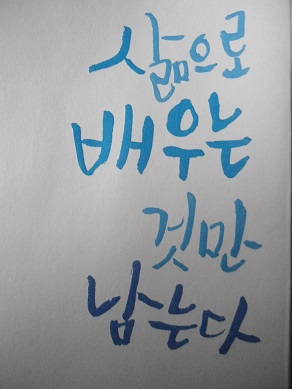 삶으로
배우는
것만
남는다